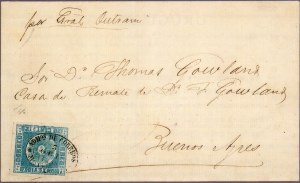 por Gral Outram
Sr Dn Thomas Gowland
Casa de Remate de Dn T Gowland
Buenos Ayres